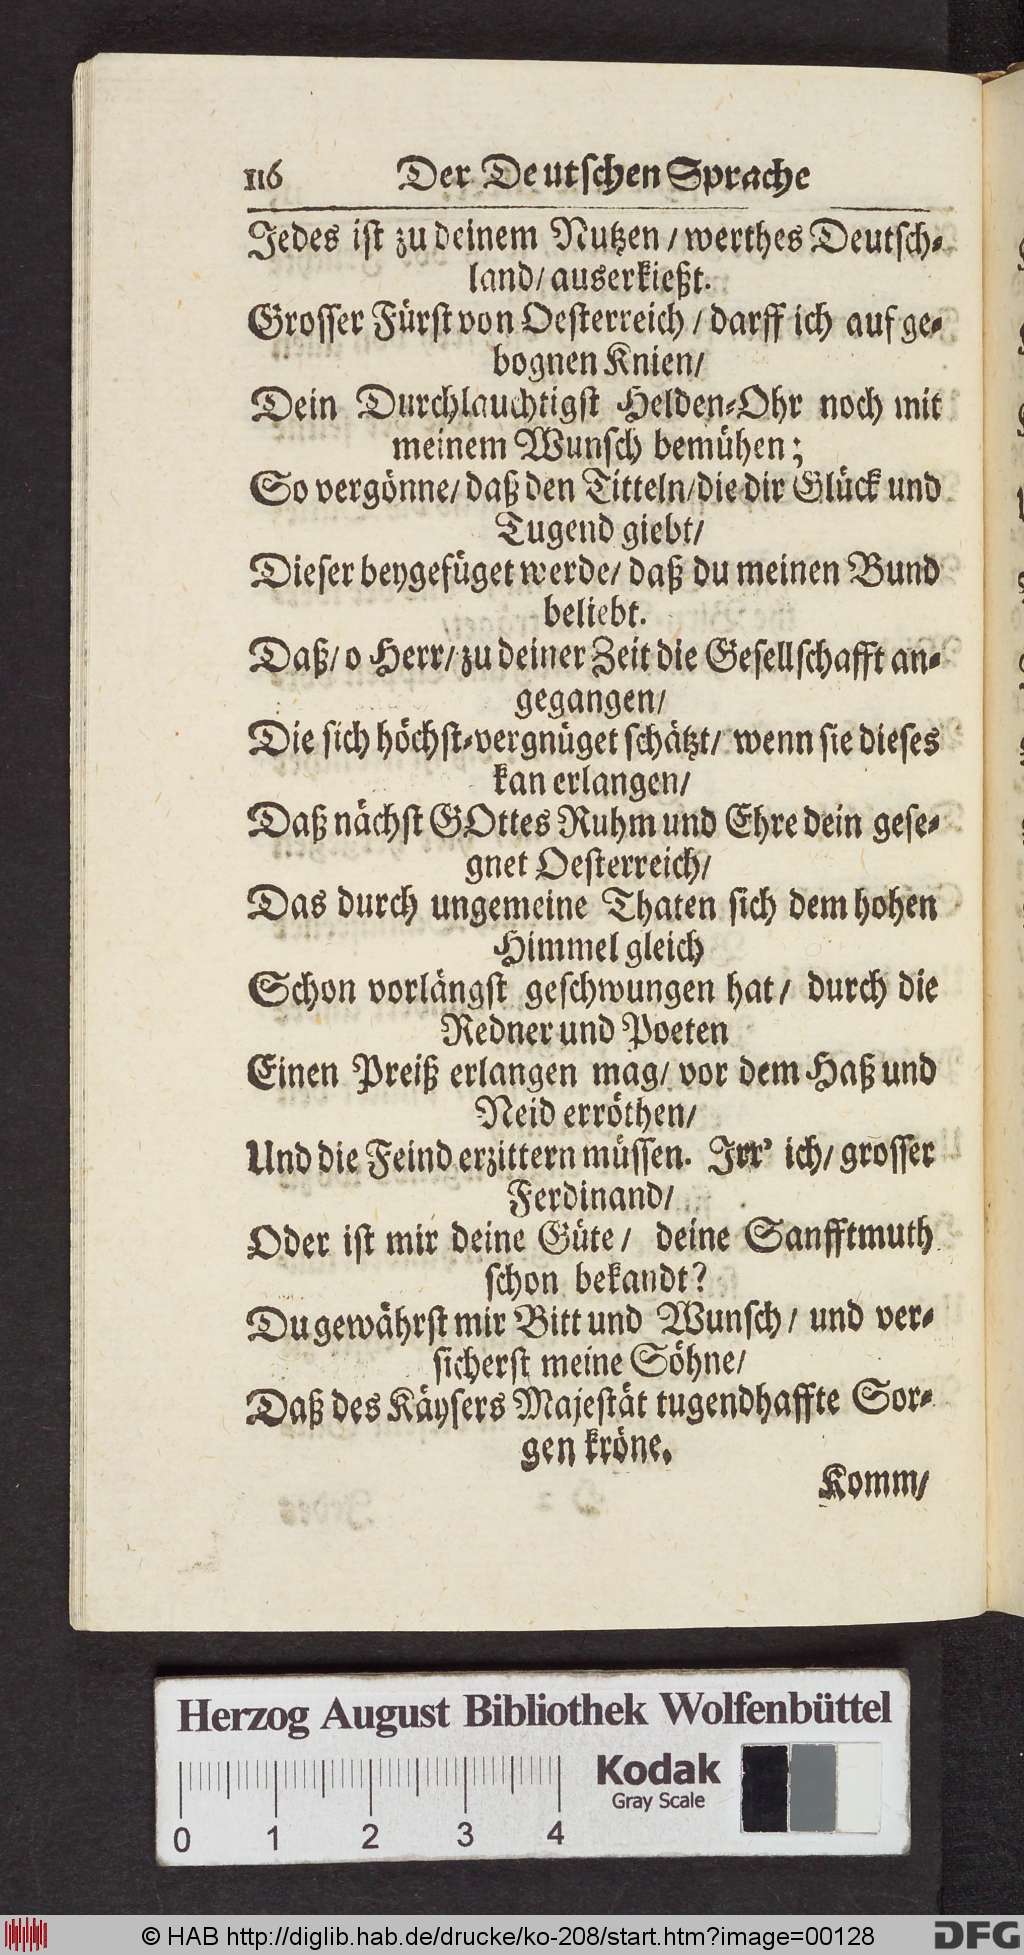 116 Der Deutschen Sprache
Jedes ist zu deinem Nutzen / werthes Deutsch-
land / auserkießt.
Grosser Fürst von Oesterreich / darff ich auf ge-
bognen Knien /
Dein Durchlauchtigst Helden-Ohr noch mit
meinem Wunsch bemühen;
So vergönne / daß den Titteln / die dir Glück und
Tugend giebt /
Dieser beygefüget werde / daß du meinen Bund
beliebt.
Daß / o Herr / zu deiner Zeit die Gesellschafft an-
gegangen /
Die sich höchst-vergnüget schätzt / wenn sie dieses
kan erlangen /
Daß nächst GOttes Ruhm und Ehre dein gese-
gnet Oesterreich /
Das durch ungemeine Thaten sich dem hohen
Himmel gleich
Schon vorlängst geschwungen hat / durch die
Redner und Poeten
Einen Preiß erlangen mag / vor dem Haß und
Neid erröthen /
Und die Feind erzittern müssen. Irr' ich / grosser
Ferdinand /
Oder ist mir deine Güte / deine Sanfftmuth
schon bekandt?
Du gewährst mir Bitt und Wunsch / und ver-
sicherst meine Söhne /
Daß des Käysers Majestät tugendhaffte Sor-
gen kröne.
Komm /
Herzog August Bibliothek Wolfenbüttel
Kodak
Gray Scale
0 1 2 3 4
© HAB http://diglib.hab.de/drucke/ko-208/start.htm?image=00128
DFG